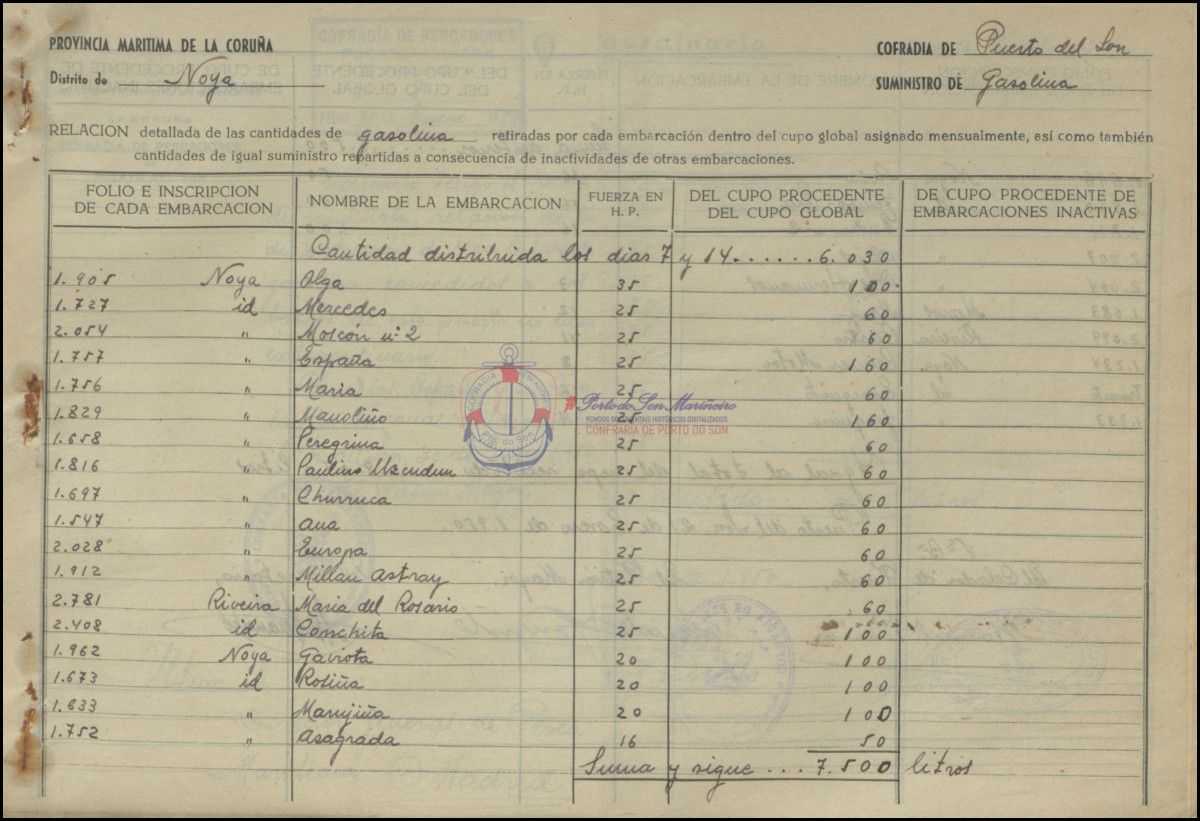 PROVINCIA MARITIMA DE LA CORUÑA
Distrito de Noya
COFRADIA DE Puerto del Son
SUMINISTRO DE Gasolina
RELACION detallada de las cantidades de gasolina retiradas por cada embarcación dentro del cupo global asignado mensualmente, así como también
cantidades de igual suministro repartidas a consecuencia de inactividades de otras embarcaciones.
FOLIO E INSCRIPCION DE CADA EMBARCACION NOMBRE DE LA EMBARCACION FUERZA EN H. P. DEL CUPO PROCEDENTE DEL CUPO GLOBAL DE CUPO PROCEDENTE DE EMBARCACIONES INACTIVAS
Cantidad distribuida los dias 7 y 14......6.030
1.905 Noya Olga 35 100
1.727 id Mercedes 25 60
2.054 " Moscón nº 2 25 60
1.757 " España 25 160
1.756 " Maria 25 60
1.829 " Manoliño 25 160
1.658 " Peregrina 25 60
1.816 " Paulino Uzcudun 25 60
1.697 " Churruca 25 60
1.547 " Ana 25 60
2.028 " Europa 25 60
1.912 " Millan Astray 25 60
2.781 Riveira Maria del Rosario 25 60
2.408 id Conchita 25 100
1.962 Noya Gaviota 20 100
1.673 id Rosiña 20 100
1.633 " Marujiña 20 100
1.752 " Asagrada 16 50
Suma y sigue ... 7.500 litros
COFRADIA PESCADORES
Pto. do Son
#Porto do Son Mariñeiro
FONDOS DOCUMENTAIS HISTÓRICOS DIXITALIZADOS
CONFRARÍA DE PORTO DO SON